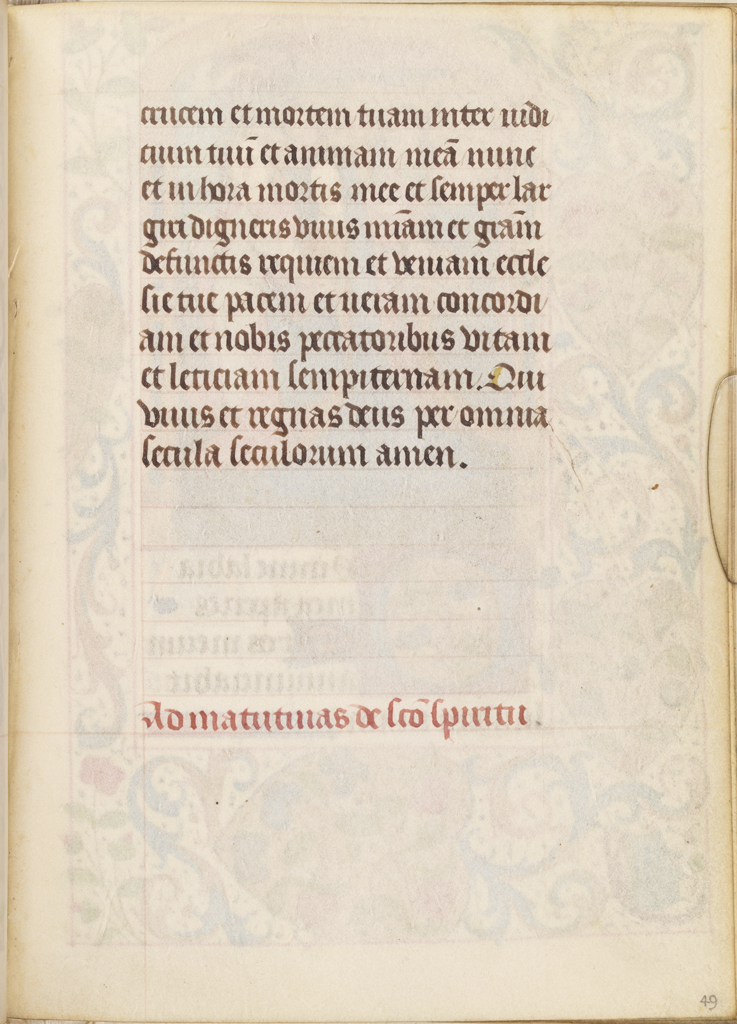 crucem et mortem tuam inter iudi
cium tuū et animam meā nunc
et in hora mortis mee et semper lar
giri digneris viuis miā̄m et grām̄
defunctis requiem et veniam eccle
sie tue pacem et ueram concordi
am et nobis peccatoribus vitam
et leticiam sempiternam. Qui
viuis et regnas deus per omnia
secula seculorum amen.
Ad matutinas de scō spiritu.
49